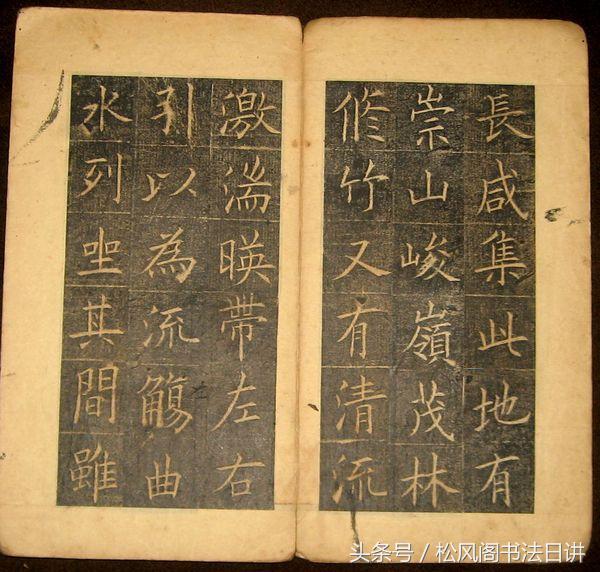 長咸集此地有
崇山峻嶺茂林
脩竹又有清流
激湍暎帶左右
引以為流觴曲
水列坐其間雖
头条号／松风阁书法日讲